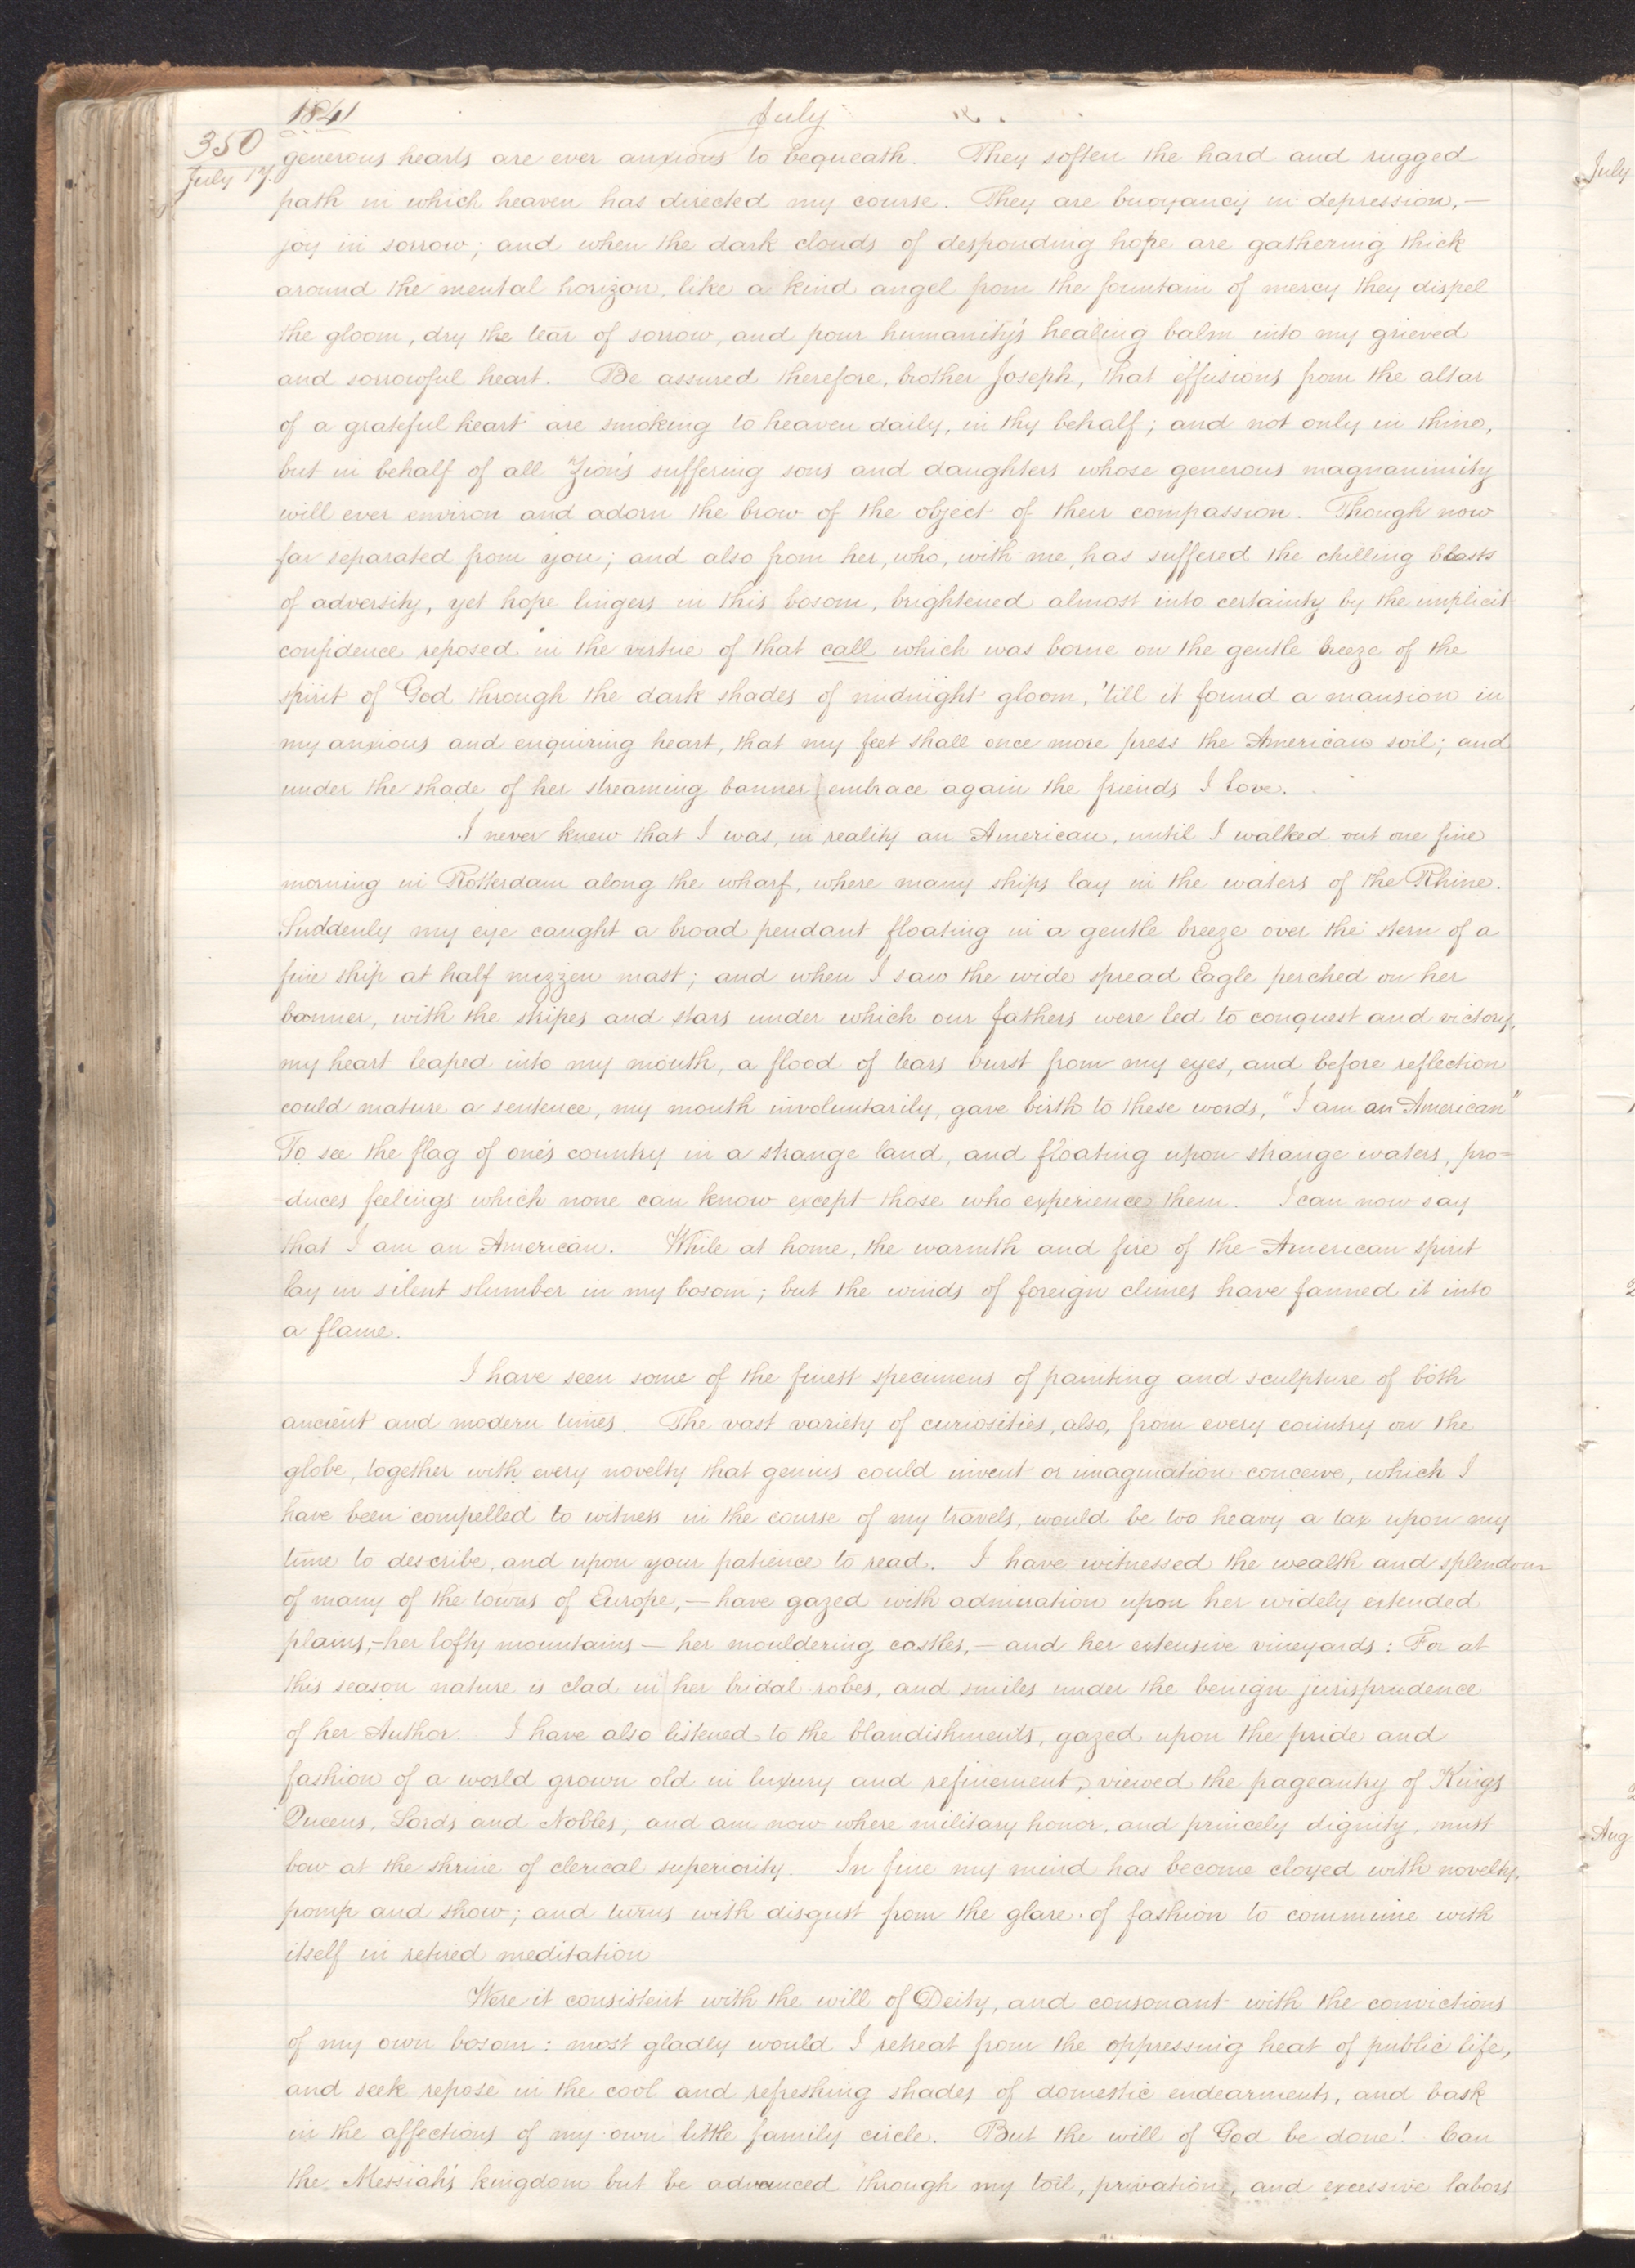 1841 July
350
July 17.
generous hearts are ever anxious to bequeath. They soften the hard and rugged
path in which heaven has directed my course. They are buoyancy in depression,—
joy in sorrow; and when the dark clouds of desponding hope are gathering thick
around the mental horizon, like a kind angel from the fountain of mercy they dispel
the gloom, dry the tear of sorrow, and pour humanity's healing balm into my grieved
and sorrowful heart. Be assured therefore, brother Joseph, that effusions from the altar
of a grateful heart are smoking to heaven daily, in thy behalf; and not only in thine,
but in behalf of all Zion's suffering sons and daughters whose generous magnanimity
will ever environ and adorn the brow of the object of their compassion. Though now
far separated from you; and also from her, who, with me, has suffered the chilling blasts
of adversity, yet hope lingers in this bosom, brightened almost into certainty by the implicit
confidence reposed in the virtue of that call which was borne on the gentle breeze of the
spirit of God through the dark shades of midnight gloom, 'till it found a mansion in
my anxious and enquiring heart, that my feet shall once more press the American soil; and
under the shade of her streaming banner embrace again the friends I love.
I never knew that I was, in reality an American, until I walked out one fine
morning in Rotterdam along the wharf, where many ships lay in the waters of the Rhine.
Suddenly my eye caught a broad pendant floating in a gentle breeze over the stern of a
fine ship at half mizzen mast; and when I saw the wide spread Eagle perched on her
banner, with the stripes and stars under which our fathers were led to conquest and victory,
my heart leaped into my mouth, a flood of tears burst from my eyes, and before reflection
could mature a sentence, my mouth involuntarily, gave birth to these words, "I am an American"
To see the flag of one's country in a strange land, and floating upon strange waters, pro=
duces feelings which none can know except those who experience them. I can now say
that I am an American. While at home, the warmth and fire of the American spirit
lay in silent slumber in my bosom; but the winds of foreign climes have fanned it into
a flame.
I have seen some of the finest specimens of painting and sculpture of both
ancient and modern times. The vast variety of curiosities, also, from every country on the
globe, together with every novelty that genius could invent or imagination conceive, which I
have been compelled to witness in the course of my travels, would be too heavy a tax upon my
time to describe, and upon your patience to read. I have witnessed the wealth and splendour
of many of the towns of Europe,— have gazed with admiration upon her widely extended
plains,—her lofty mountains — her mouldering castles,— and her extensive vineyards: For at
this season nature is clad in her bridal robes, and smiles under the benign jurisprudence
of her Author. I have also listened to the blandishments, gazed upon the pride and
fashion of a world grown old in luxury and refinement, viewed the pageantry of Kings
Queens, Lords and Nobles; and am now where military honor, and princely dignity, must
bow at the shrine of clerical superiority. In fine my mind has become cloyed with novelty,
pomp and show; and turns with disgust from the glare of fashion to commune with
itself in retired meditation
Were it consistent with the will of Deity, and consonant with the convictions
of my own bosom: most gladly would I retreat from the oppressing heat of public life,
and seek repose in the cool and refreshing shades of domestic endearments, and bask
in the affections of my own little family circle. But the will of God be done! Can
the Messiah's kingdom but be advanced through my toil, privation, and excessive labors
July
Aug